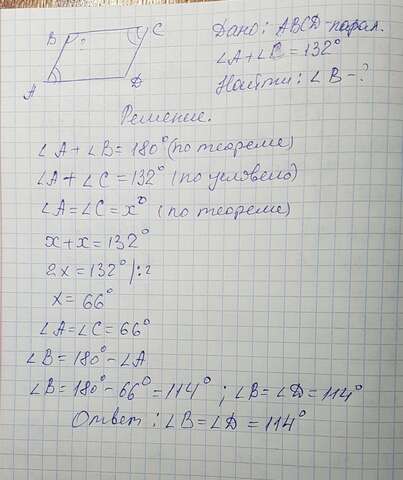 B C
A D
Дано: ABCD-парал.
∠A+∠C=132°
Найти: ∠B-?
Решение.
∠A+∠B=180° (по теореме)
∠A+∠C=132° (по условию)
∠A=∠C=x° (по теореме)
x+x=132°
2x=132° |:2
x=66°
∠A=∠C=66°
∠B=180°-∠A
∠B=180°-66°=114° ; ∠B=∠D=114°
Ответ: ∠B=∠D=114°